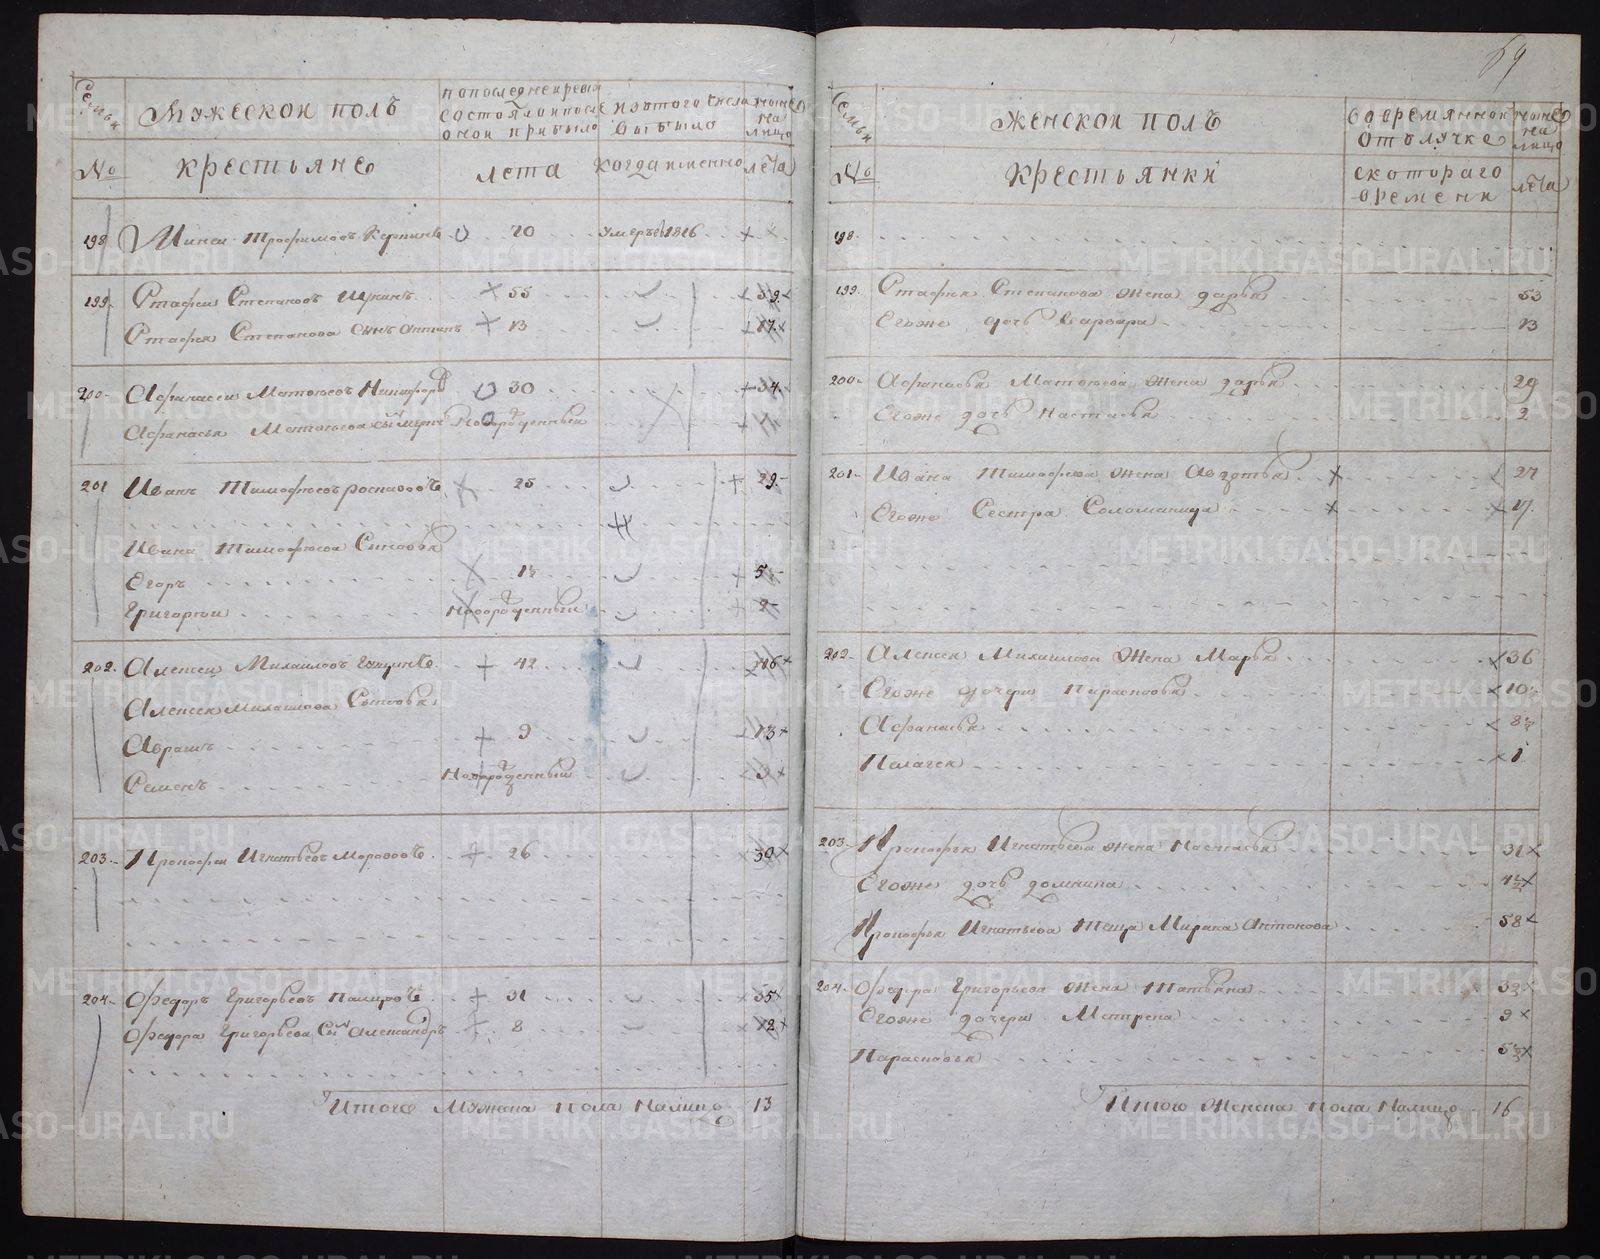 69
Семьи
Мужескои полъ
по последней ревизии
состояло и после
оной прибыло
из того числа
выбыло
ныне
на
лицо
№
крестьяне
лета
когда именно
лета
198
Трофимовъ
20
умеръ 1816
199.
Стафеи Степановъ
55
59
Стафея Степанова сынъ Антипъ
13
17
200.
Афанасеи Матвѣевъ
30
34
Афанасья Матвѣева сынъ
Новорожденный
201
Иванъ Тимофѣевъ
25
29
Ивана Тимофѣева Сыновья
Егоръ
1½
5½
Григореи
Новорожденный
2
202.
Алексеи Михаиловъ
42
46
Алексея Михаилова Сыновья
Абрамъ
9
13
Семенъ
Новорожденный
3
203.
Прокофеи Игнатьевъ Морозовъ
26
30
204.
Федоръ Григорьевъ
31
35
Федора Григорьева Сынъ Александръ
8
12
Итого Мужска пола Налицо 13
Семьи
Женскои полъ
во времяннои
отълучке
ныне
на
лицо
№
крестьянки
с котораго
времени
лета
198.
199.
Стафея Степанова жена Дарья
53
Егоже дочь Варвара
13
200.
Афанасья Матвѣева жена Дарья
29
Егоже дочь Настасья
2
201.
Ивана Тимофѣева жена Авдотья
27
Егоже Сестра Соломанида
17
202.
Алексея Михаилова жена Марья
36
Егоже дочери Парасковья
10½
Афанасья
8½
Палагея
1
203.
Прокофья Игнатьева жена Настасья
31
Егоже дочь Домнина
4½
Прокофья Игнатьева теща Марина Антонова
58
204.
Федора Григорьева жена Татьяна
32
Егоже дочери Матрена
9
Парасковья
5½
Итого Женска пола Налицо 16
METRIKI.GASO-URAL.RU